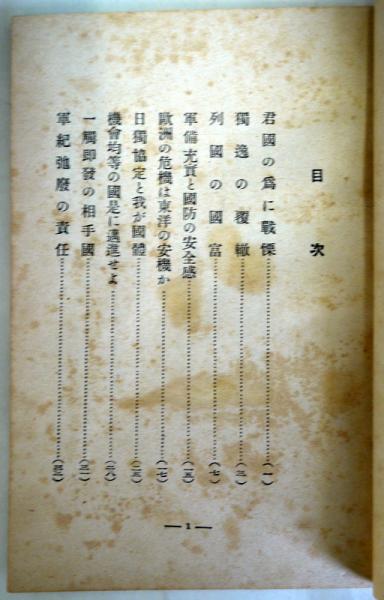 目次
君國の爲に戰慄……………(一)
獨逸の覆轍……………(三)
列國の國富……………(七)
軍備充實と國防の安全感……………(一五)
歐洲の危機は東洋の安機か……………(一七)
日獨協定と我が國體……………
機會均等の國是に邁進せよ……………(二八)
一觸即發の相手國……………
軍紀弛廢の責任……………
—1—